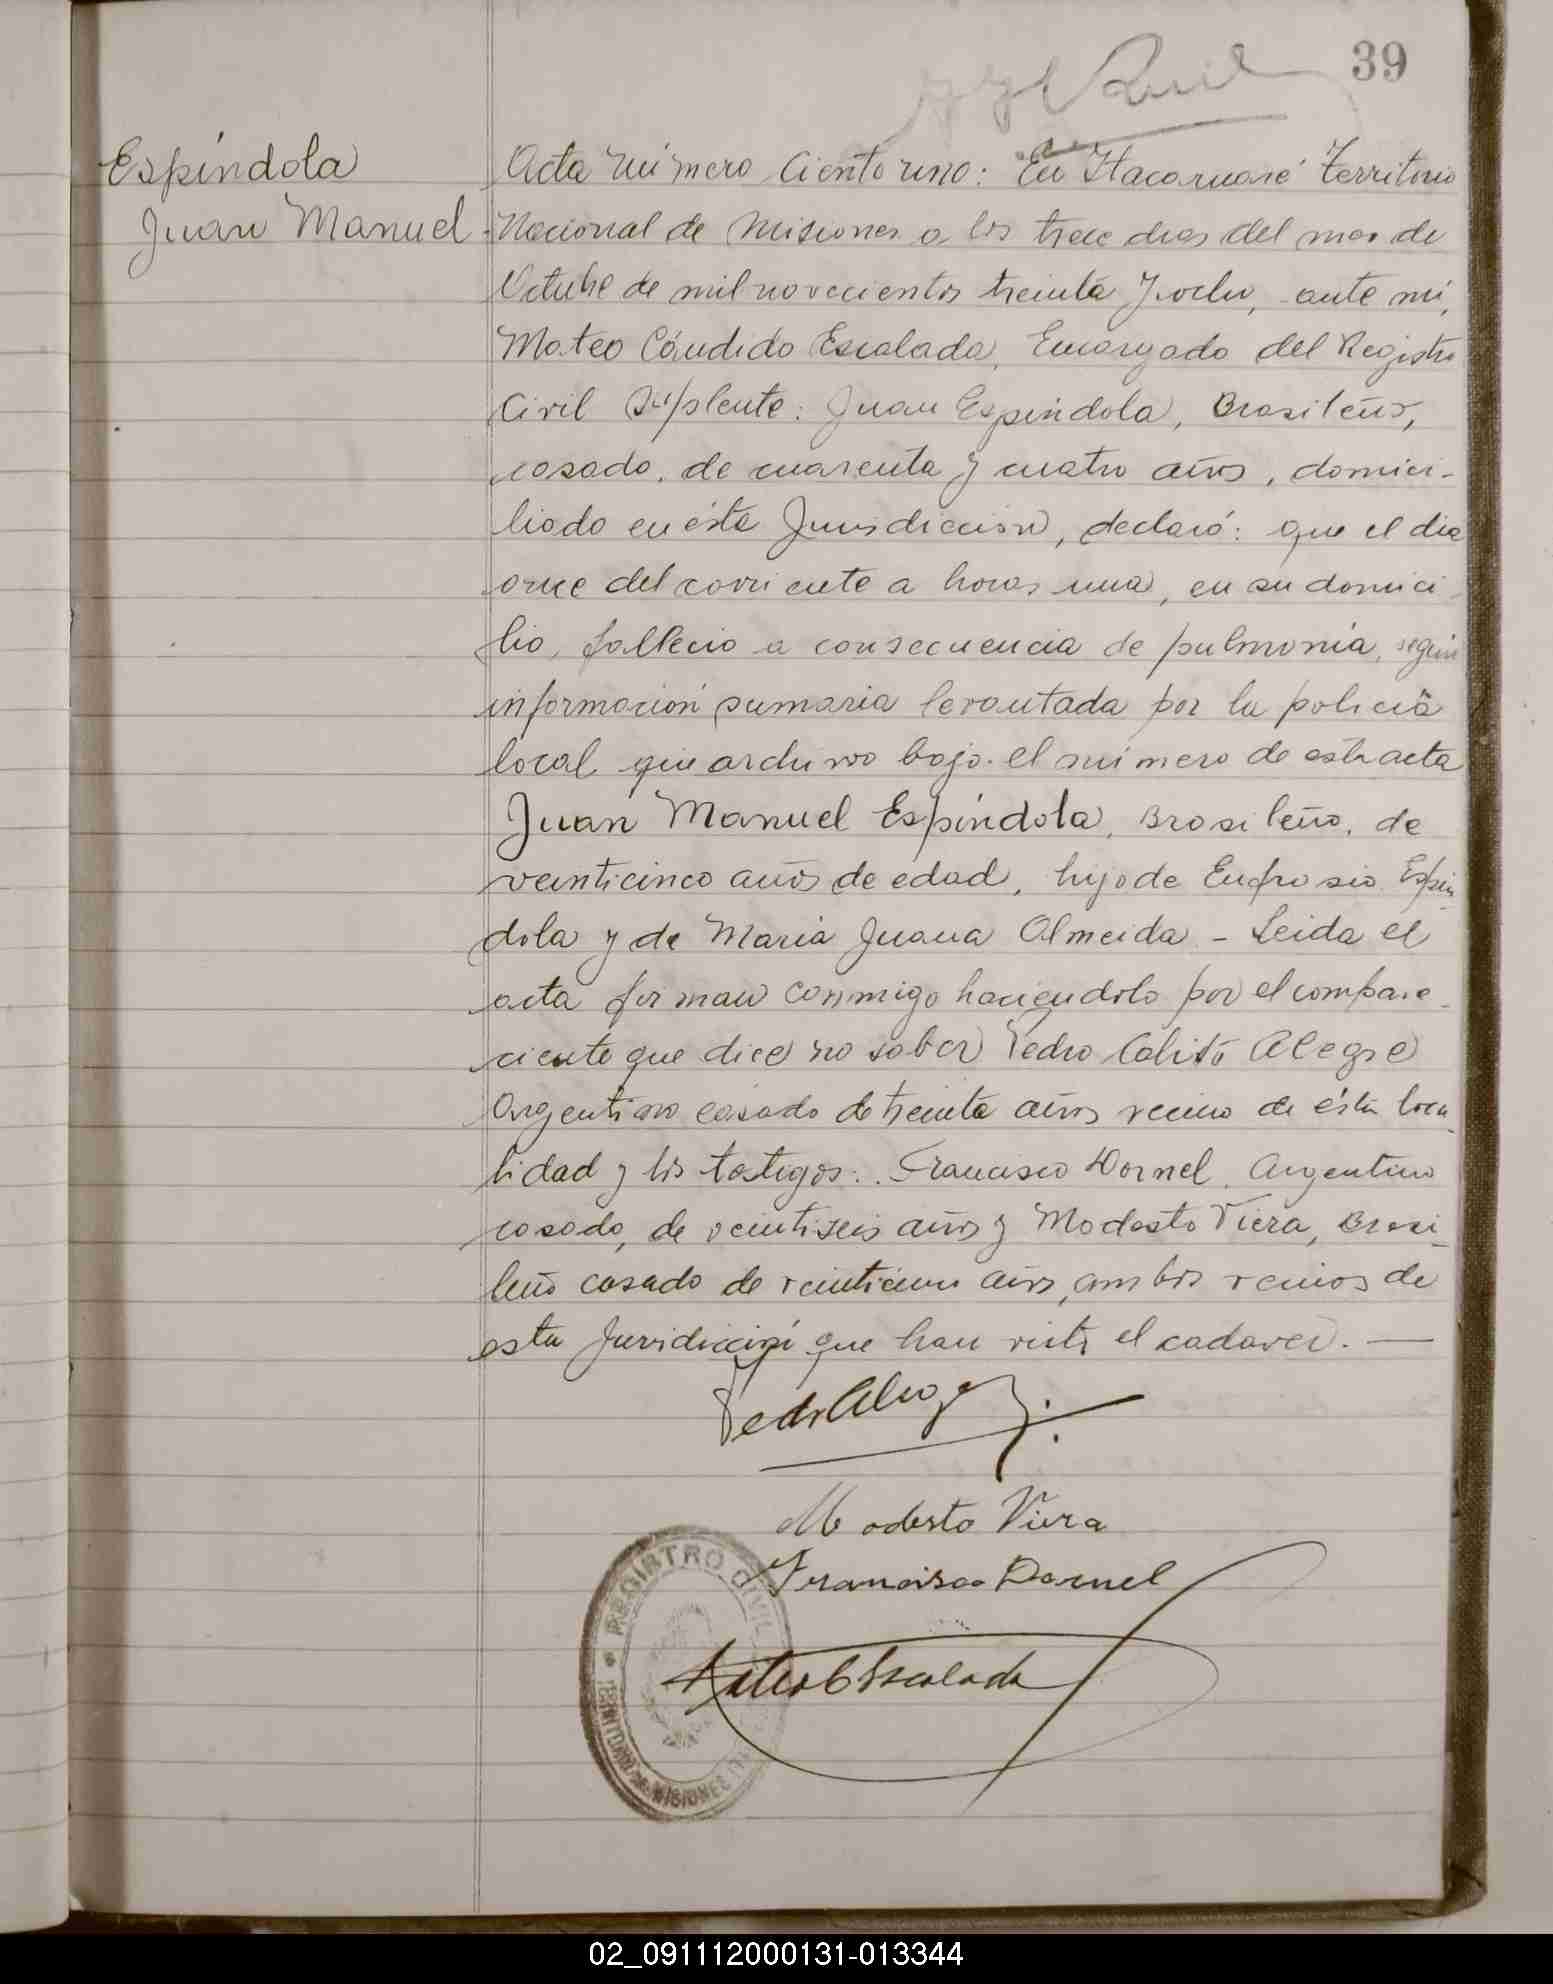 39
Espíndola
Juan Manuel
Acta número Ciento uno: En Itacaruaré Territorio
Nacional de Misiones a los trece dias del mes de
Octubre de mil novecientos treinta y ocho, ante mi,
Mateo Cándido Escalada, Encargado del Registro
Civil Suplente: Juan Espíndola, Brasileño,
casado, de cuarenta y cuatro años, domici-
liado en ésta Jurisdicción, declaró: que el dia
once del corriente a horas una, en su domici-
lio, fallecio a consecuencia de pulmonia, según
información sumaria levantada por la policia
local que archivo bajo el número de esta acta
Juan Manuel Espíndola, Brasileño, de
veinticinco años de edad, hijo de Eufrosio Espín-
dola y de Maria Juana Almeida - Leida el
acta firman conmigo haciendolo por el compare-
ciente que dice no saber Pedro Calisto Alegre
Argentino casado de treinta años vecino de ésta loca-
lidad y los testigos: Francisco Dornel, Argentino
casado, de veintiseis años y Modesto Viera, Brasi-
leño casado de veinticinco años, ambos vecinos de
esta Juridicción que han visto el cadaver. —
Pedro Alegre
Modesto Viera
Francisco Dornel
Mateo C Escalada
REGISTRO CIVIL
TERRITORIO DE MISIONES
02_091112000131-013344